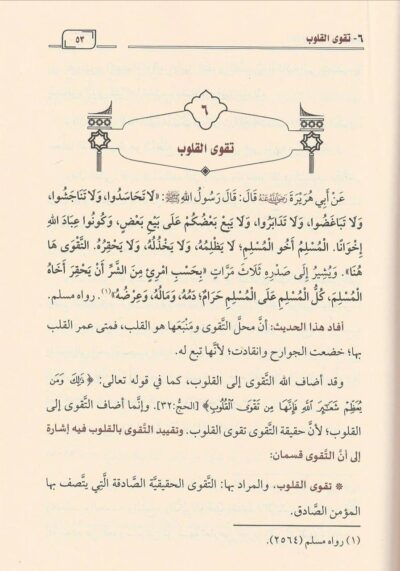 ٦- تقوى القلوب
٥٣
٦
تقوى القلوب
عَنْ أَبِي هُرَيْرَةَ رَضِيَ اللَّهُ عَنْهُ قَالَ: قَالَ رَسُولُ اللهِ ﷺ: «لَا تَحَاسَدُوا، وَلَا تَنَاجَشُوا،
وَلَا تَبَاغَضُوا، وَلَا تَدَابَرُوا، وَلَا يَبِعْ بَعْضُكُمْ عَلَى بَيْعِ بَعْضٍ، وَكُونُوا عِبَادَ اللهِ
إِخْوَانًا. الْمُسْلِمُ أَخُو الْمُسْلِمِ؛ لَا يَظْلِمُهُ، وَلَا يَخْذُلُهُ، وَلَا يَحْقِرُهُ. التَّقْوَى هَا
هُنَا». وَيُشِيرُ إِلَى صَدْرِهِ ثَلَاثَ مَرَّاتٍ «بِحَسْبِ امْرِئٍ مِنَ الشَّرِّ أَنْ يَحْقِرَ أَخَاهُ
الْمُسْلِمَ، كُلُّ الْمُسْلِمِ عَلَى الْمُسْلِمِ حَرَامٌ؛ دَمُهُ، وَمَالُهُ، وَعِرْضُهُ»(١). رواه مسلم.
أفاد هذا الحديث: أنَّ محلَّ التَّقوى ومَنْبَعَها هو القلب، فمتى عمر القلب
بها؛ خضعت الجوارح وانقادت؛ لأنَّها تبع له.
وقد أضاف الله التَّقوى إلى القلوب، كما في قوله تعالى: ﴿ذَٰلِكَ وَمَن
يُعَظِّمْ شَعَٰٓئِرَ ٱللَّهِ فَإِنَّهَا مِن تَقْوَى ٱلْقُلُوبِ﴾ [الحجّ:٣٢]. وإنَّما أضاف التَّقوى إلى
القلوب؛ لأنَّ حقيقة التَّقوى تقوى القلوب. وتقييد التَّقوى بالقلوب فيه إشارة
إلى أنَّ التَّقوى قسمان:
* تقوى القلوب، والمراد بها: التَّقوى الحقيقيَّة الصَّادقة الَّتي يتَّصف بها
المؤمن الصَّادق.
(١) رواه مسلم (٢٥٦٤).